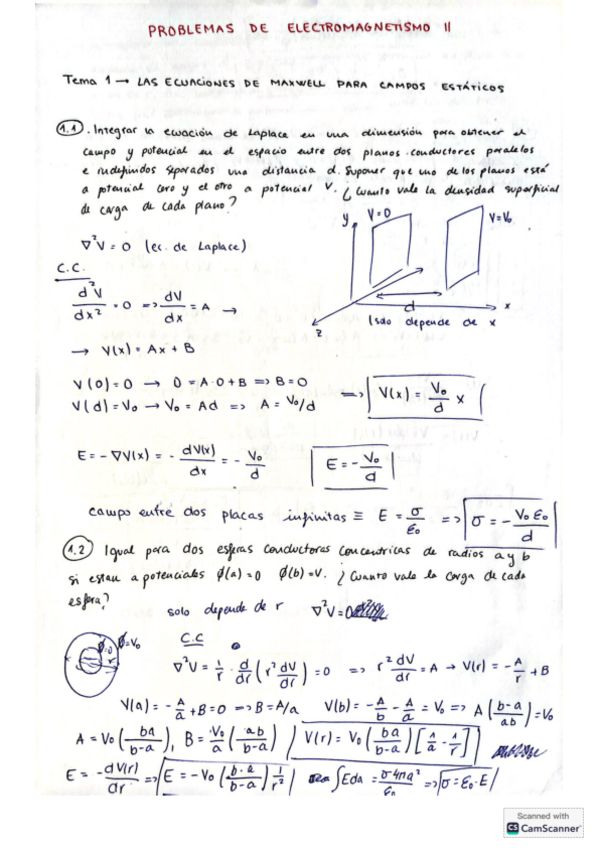 PROBLEMAS DE ELECTROMAGNETISMO II
Tema 1 → LAS ECUACIONES DE MAXWELL PARA CAMPOS ESTÁTICOS
1.1. Integrar la ecuación de Laplace en una dimensión para obtener el
campo y potencial en el espacio entre dos planos conductores paralelos
e indefinidos separados una distancia d. Suponer que uno de los planos está
a potencial cero y el otro a potencial V. ¿Cuanto vale la densidad superficial
de carga de cada plano?
y V=0 V=V₀
∇²V = 0 (ec. de Laplace)
C.C.
d²V/dx² = 0 => dV/dx = A →
d x
z
Isdo depende de x
→ V(x) = Ax + B
V(0) = 0 → 0 = A·0 + B => B = 0
V(d) = V₀ → V₀ = Ad => A = V₀/d
=> V(x) = V₀/d x
E = -∇V(x) = - dV(x)/dx = - V₀/d
E = - V₀/d
campo entre dos placas infinitas ≡ E = σ/ε₀ => σ = - V₀ε₀/d
1.2 Igual para dos esferas conductoras concentricas de radios a y b
si estan a potenciales ϕ(a)=0 ϕ(b)=V. ¿Cuanto vale la carga de cada
esfera?
solo depende de r ∇²V=0
ϕ=0 ϕ=V₀
r
C.C
∇²V = 1/r · d/dr (r² dV/dr) = 0 => r² dV/dr = A → V(r) = - A/r + B
V(a) = - A/a + B = 0 => B = A/a V(b) = - A/b - A/a = V₀ => A (b-a/ab) = V₀
A = V₀ (ba/b-a), B = V₀/a (ab/b-a) V(r) = V₀ (ba/b-a) [1/a - 1/r]
E = -dV(r)/dr => E = -V₀ (b·a/b-a) 1/r² ∫Eda = σ4πa²/ε₀ => σ = ε₀·E
Scanned with
CS CamScanner